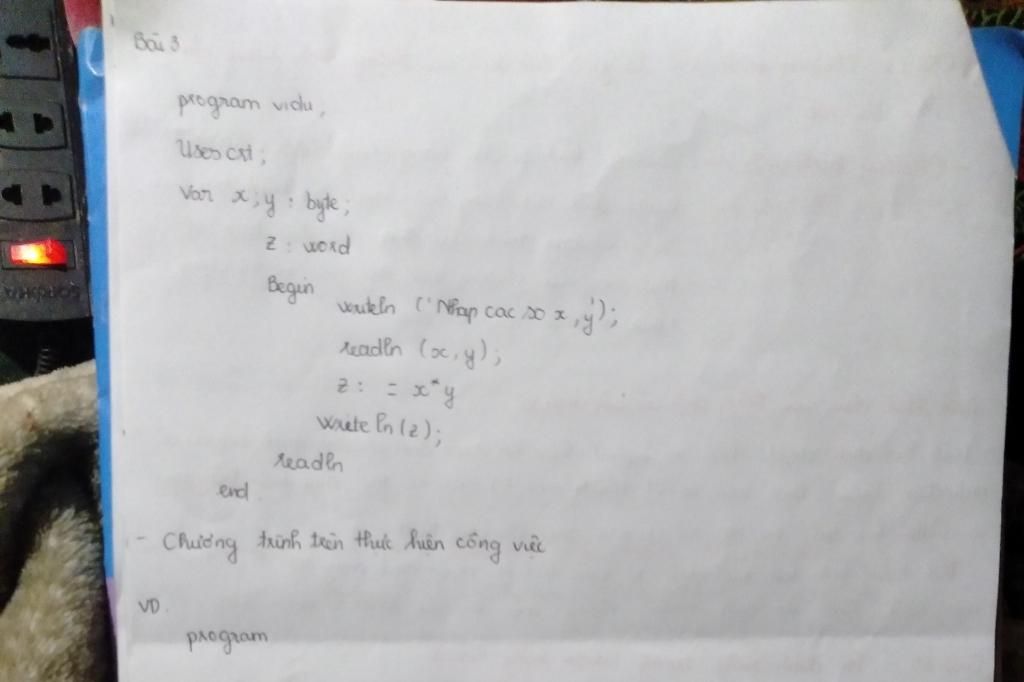 Bài 3
program vidu,
Uses crt;
Var x; y : byte;
z : word
Begin
writeln ('Nhap cac so x, y');
readln (x, y);
z : = x*y
write ln (z);
readln
end.
- Chương trình trên thực hiện công việc
VD.
program